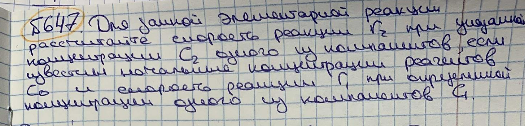 5647 Для данной элементарной реакции
рассчитайте скорость реакции r₂ при указанной
концентрации C₂ одного из компонентов, если
известны начальные концентрации реагентов
C₀ и скорость реакции r₁ при определенной
концентрации одного из компонентов C₁.